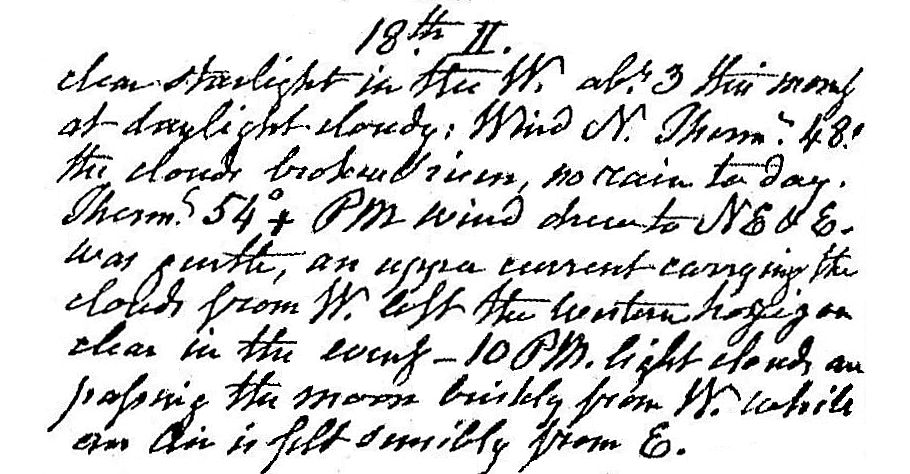 18th II.
clear starlight in the W. abt 3 this morng
at daylight cloudy: Wind N. Thermr 48°
the clouds broken & risen, no rain to day.
Thermr 54°+ PM wind drew to NE & E.
was gentle, an upper current carrying the
clouds from W. left the western horizon
clear in the eveng – 10 PM. light clouds are
passing the moon briskly from W. while
an Air is felt sensibly from E.